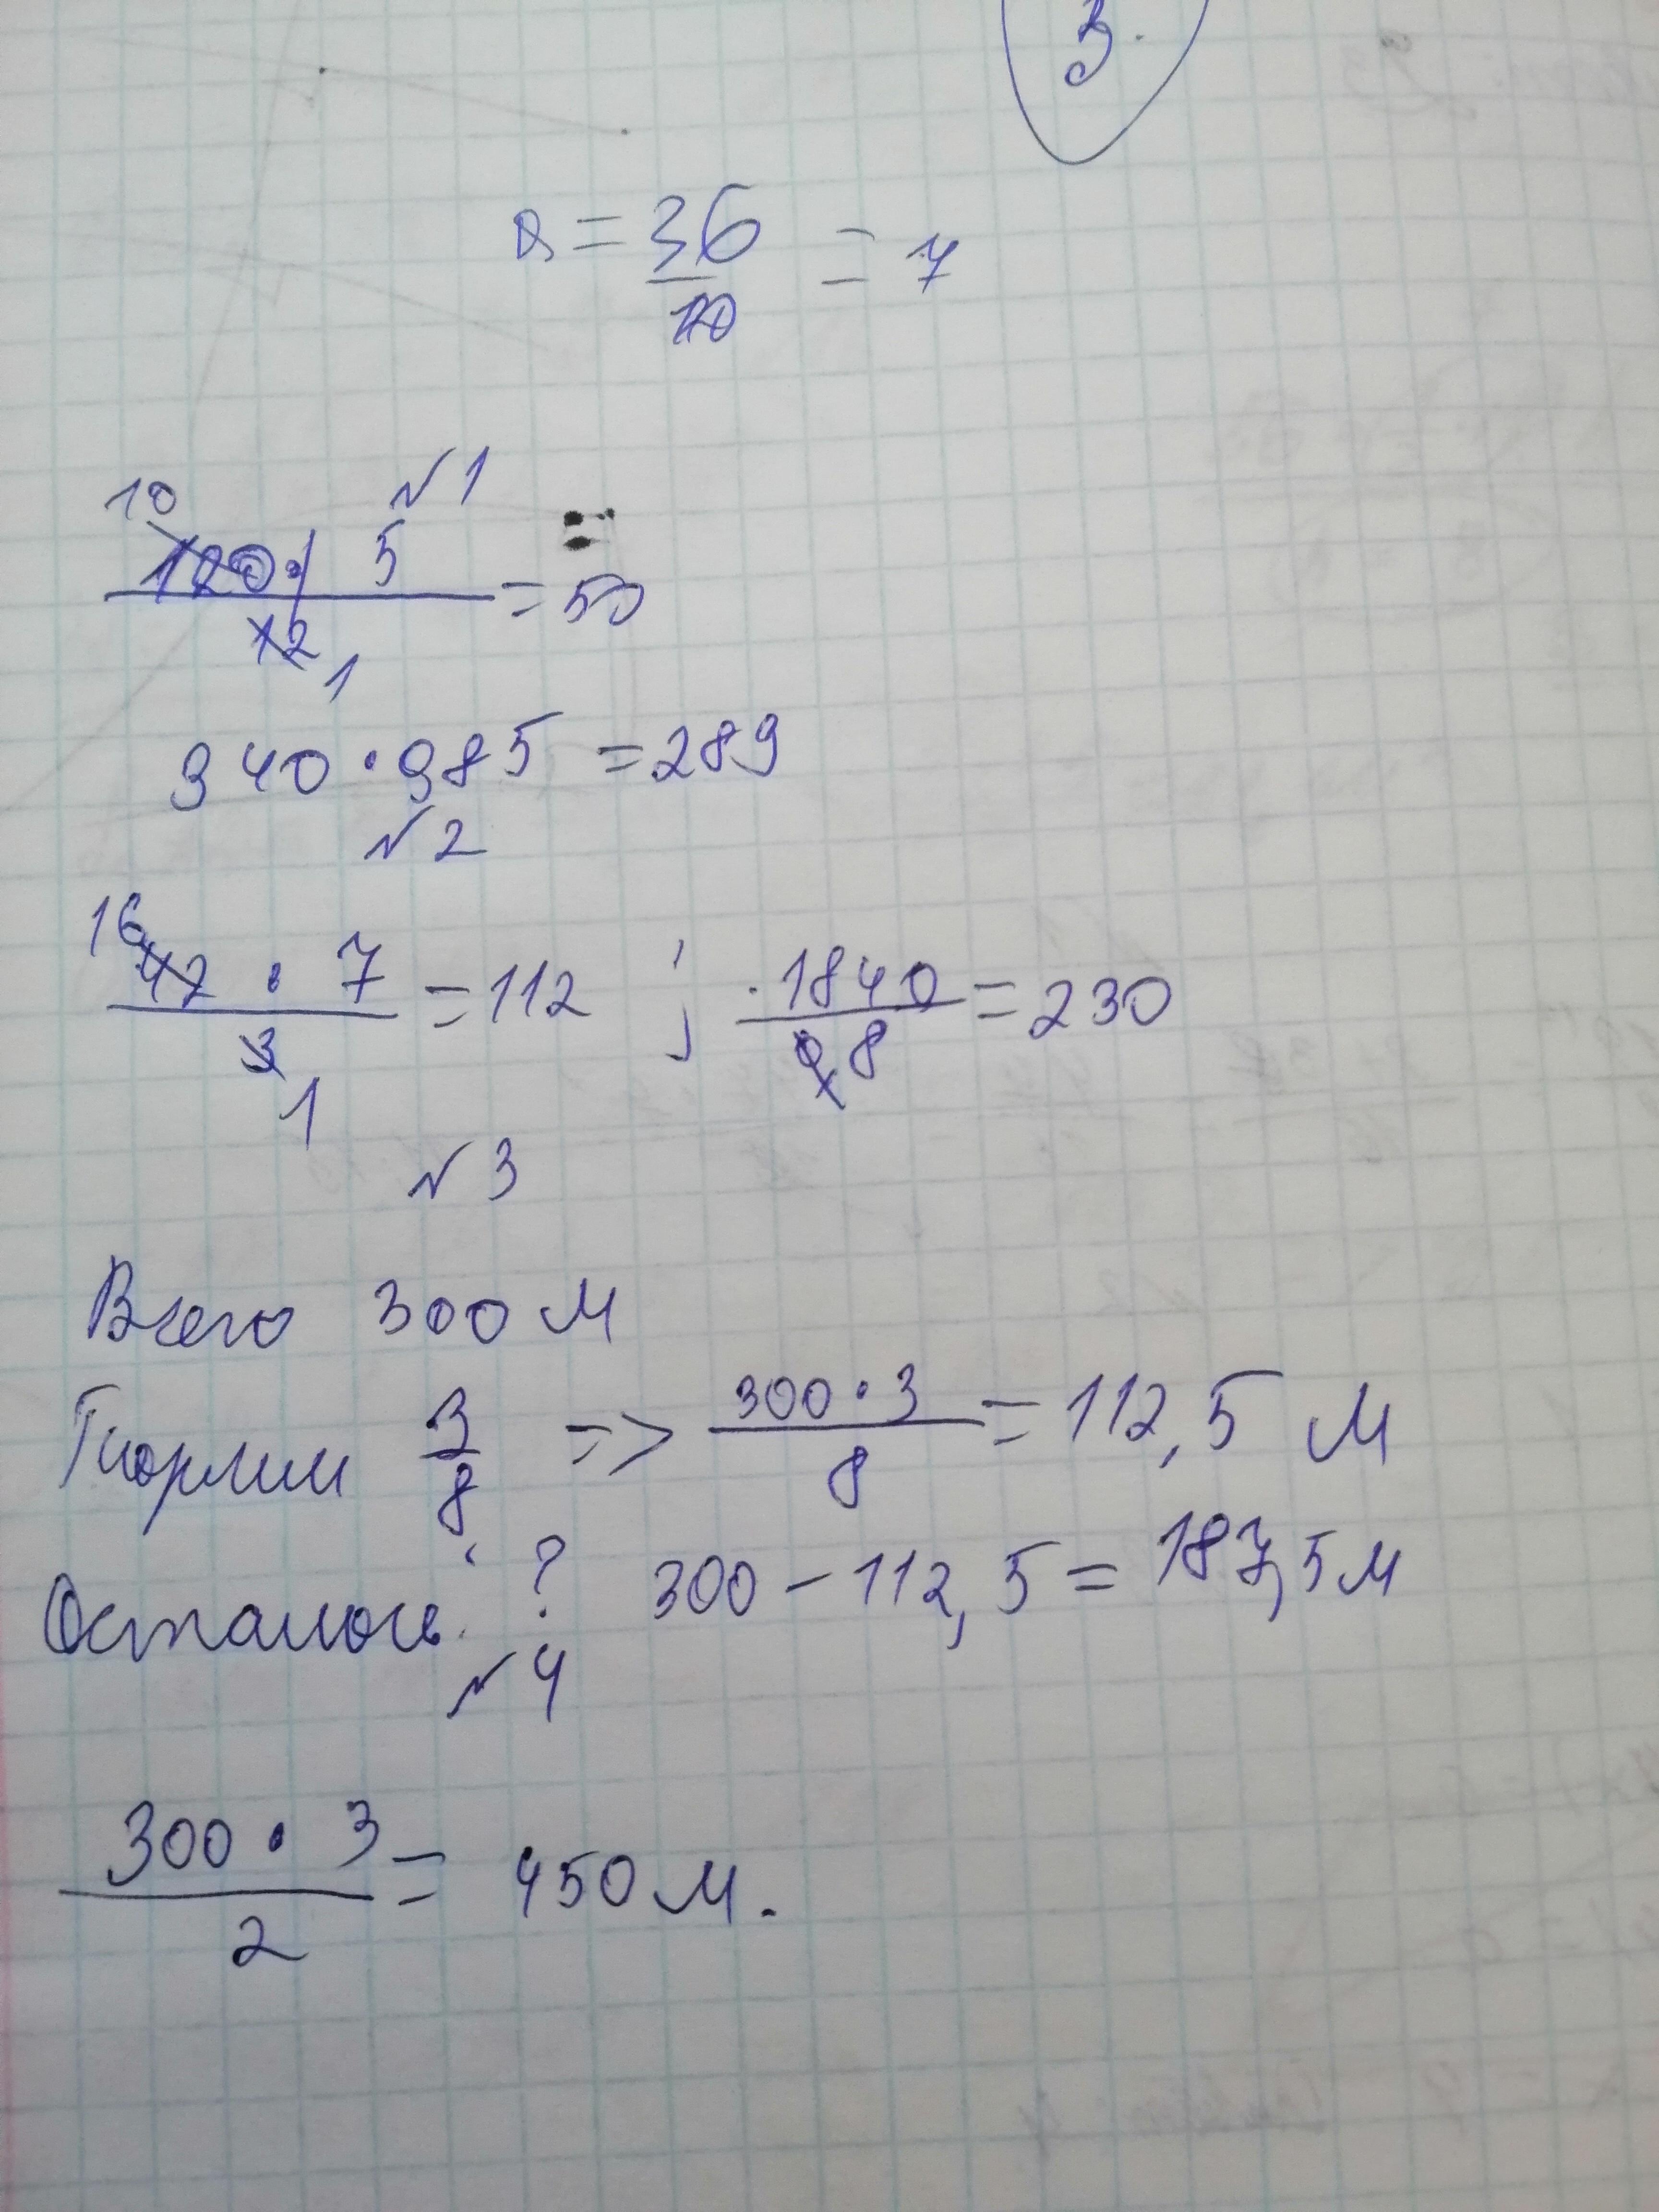 3.
= 36/10 = 7
№1
10
120 · 5 / 12 = 50
1
340 · 985 = 289
№2
16
42 · 7 / 3 = 112 ; 1840 / 8 = 230
1
№3
Всего 300 м
3/8 => 300 · 3 / 8 = 112,5 м
Осталось ? 300 - 112,5 = 187,5 м
№4
300 · 3 / 2 = 450 м.